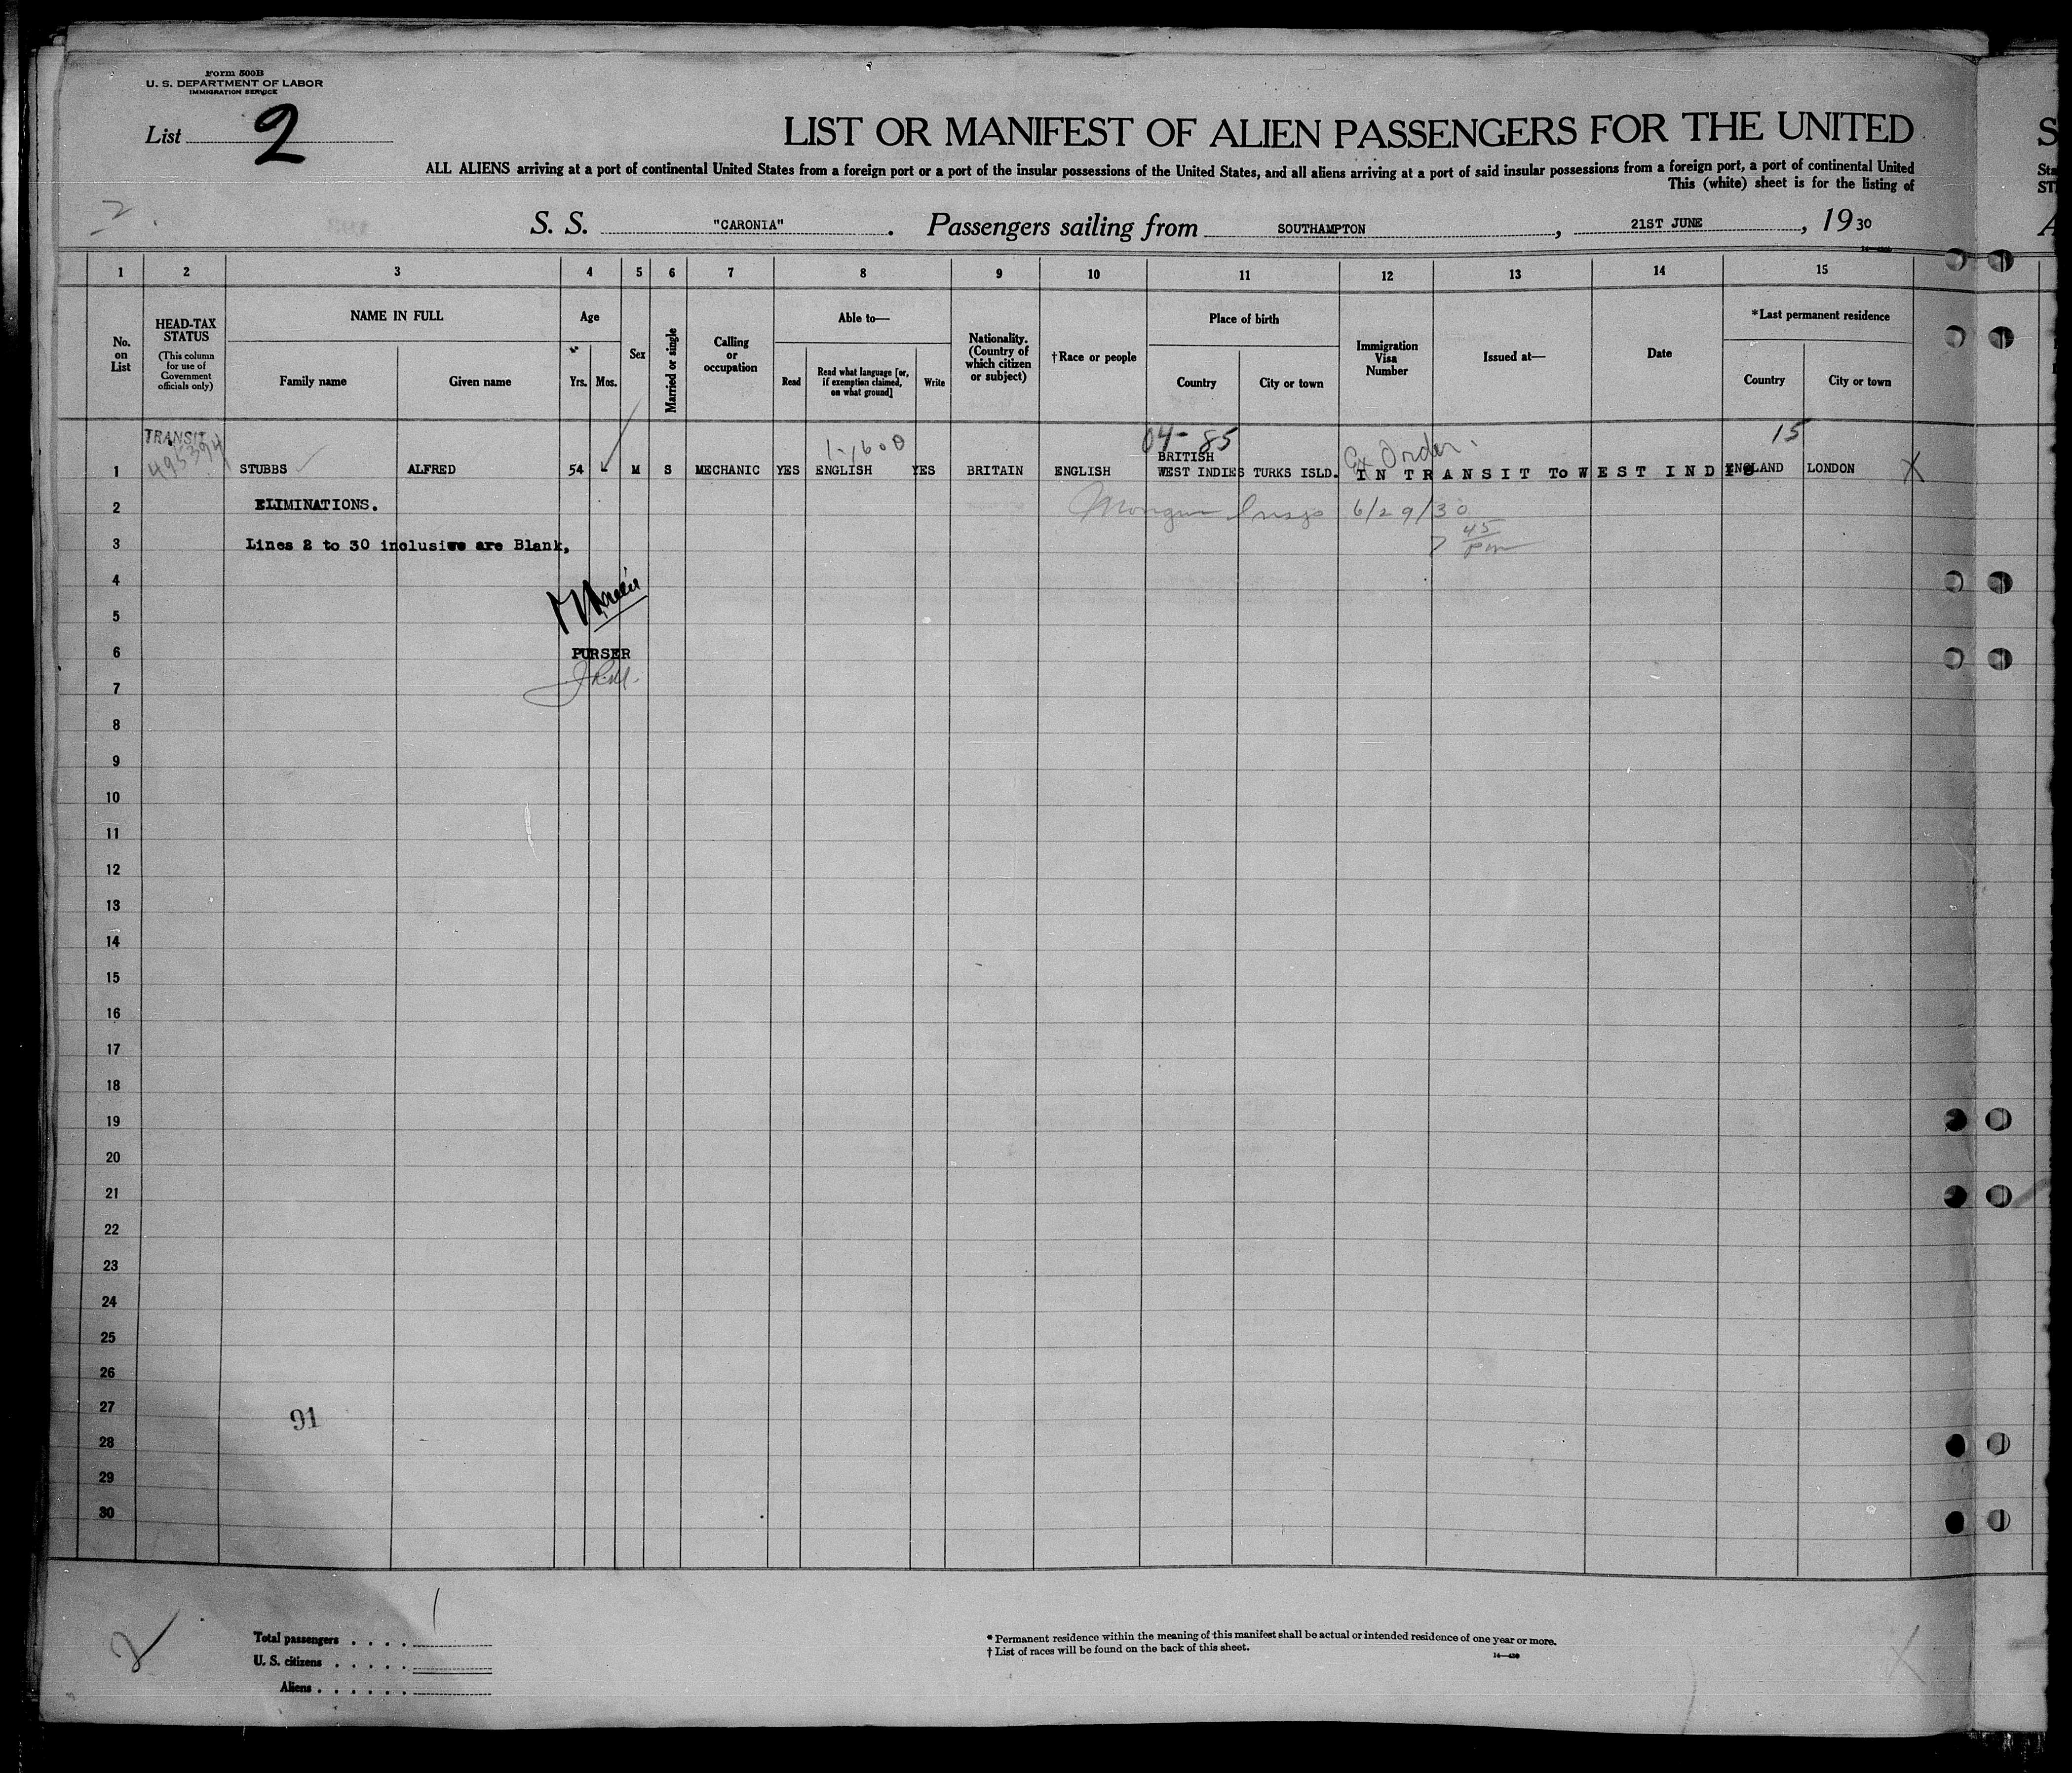 Form 500B
U. S. DEPARTMENT OF LABOR
IMMIGRATION SERVICE
List 2
LIST OR MANIFEST OF ALIEN PASSENGERS FOR THE UNITED
ALL ALIENS arriving at a port of continental United States from a foreign port or a port of the insular possessions of the United States, and all aliens arriving at a port of said insular possessions from a foreign port, a port of continental United
This (white) sheet is for the listing of
S. S. "CARONIA". Passengers sailing from SOUTHAMPTON, 21ST JUNE, 1930
1 2 3 4 5 6 7 8 9 10 11 12 13 14 15
No. on List
HEAD-TAX STATUS
(This column for use of Government officials only)
NAME IN FULL
Family name
Given name
Age
Yrs.
Mos.
Sex
Married or single
Calling or occupation
Able to—
Read
Read what language [or, if exemption claimed, on what ground]
Write
Nationality. (Country of which citizen or subject)
†Race or people
Place of birth
Country
City or town
Immigration Visa Number
Issued at—
Date
*Last permanent residence
Country
City or town
TRANSIT
495394
04-85
Ex Order.
15
1 STUBBS ALFRED 54 M S MECHANIC YES ENGLISH YES BRITAIN ENGLISH BRITISH WEST INDIES TURKS ISLD. IN TRANSIT To WEST INDIS ENGLAND LONDON X
2 ELIMINATIONS.
6/29/30
3 Lines 2 to 30 inclusive are Blank,
7 45 Pm
4
5
6 PURSER
7
8
9
10
11
12
13
14
15
16
17
18
19
20
21
22
23
24
25
26
27
91
28
29
30
2
Total passengers . . . . 1
U. S. citizens . . . . .
Aliens . . . . . .
* Permanent residence within the meaning of this manifest shall be actual or intended residence of one year or more.
† List of races will be found on the back of this sheet.
14—430
X